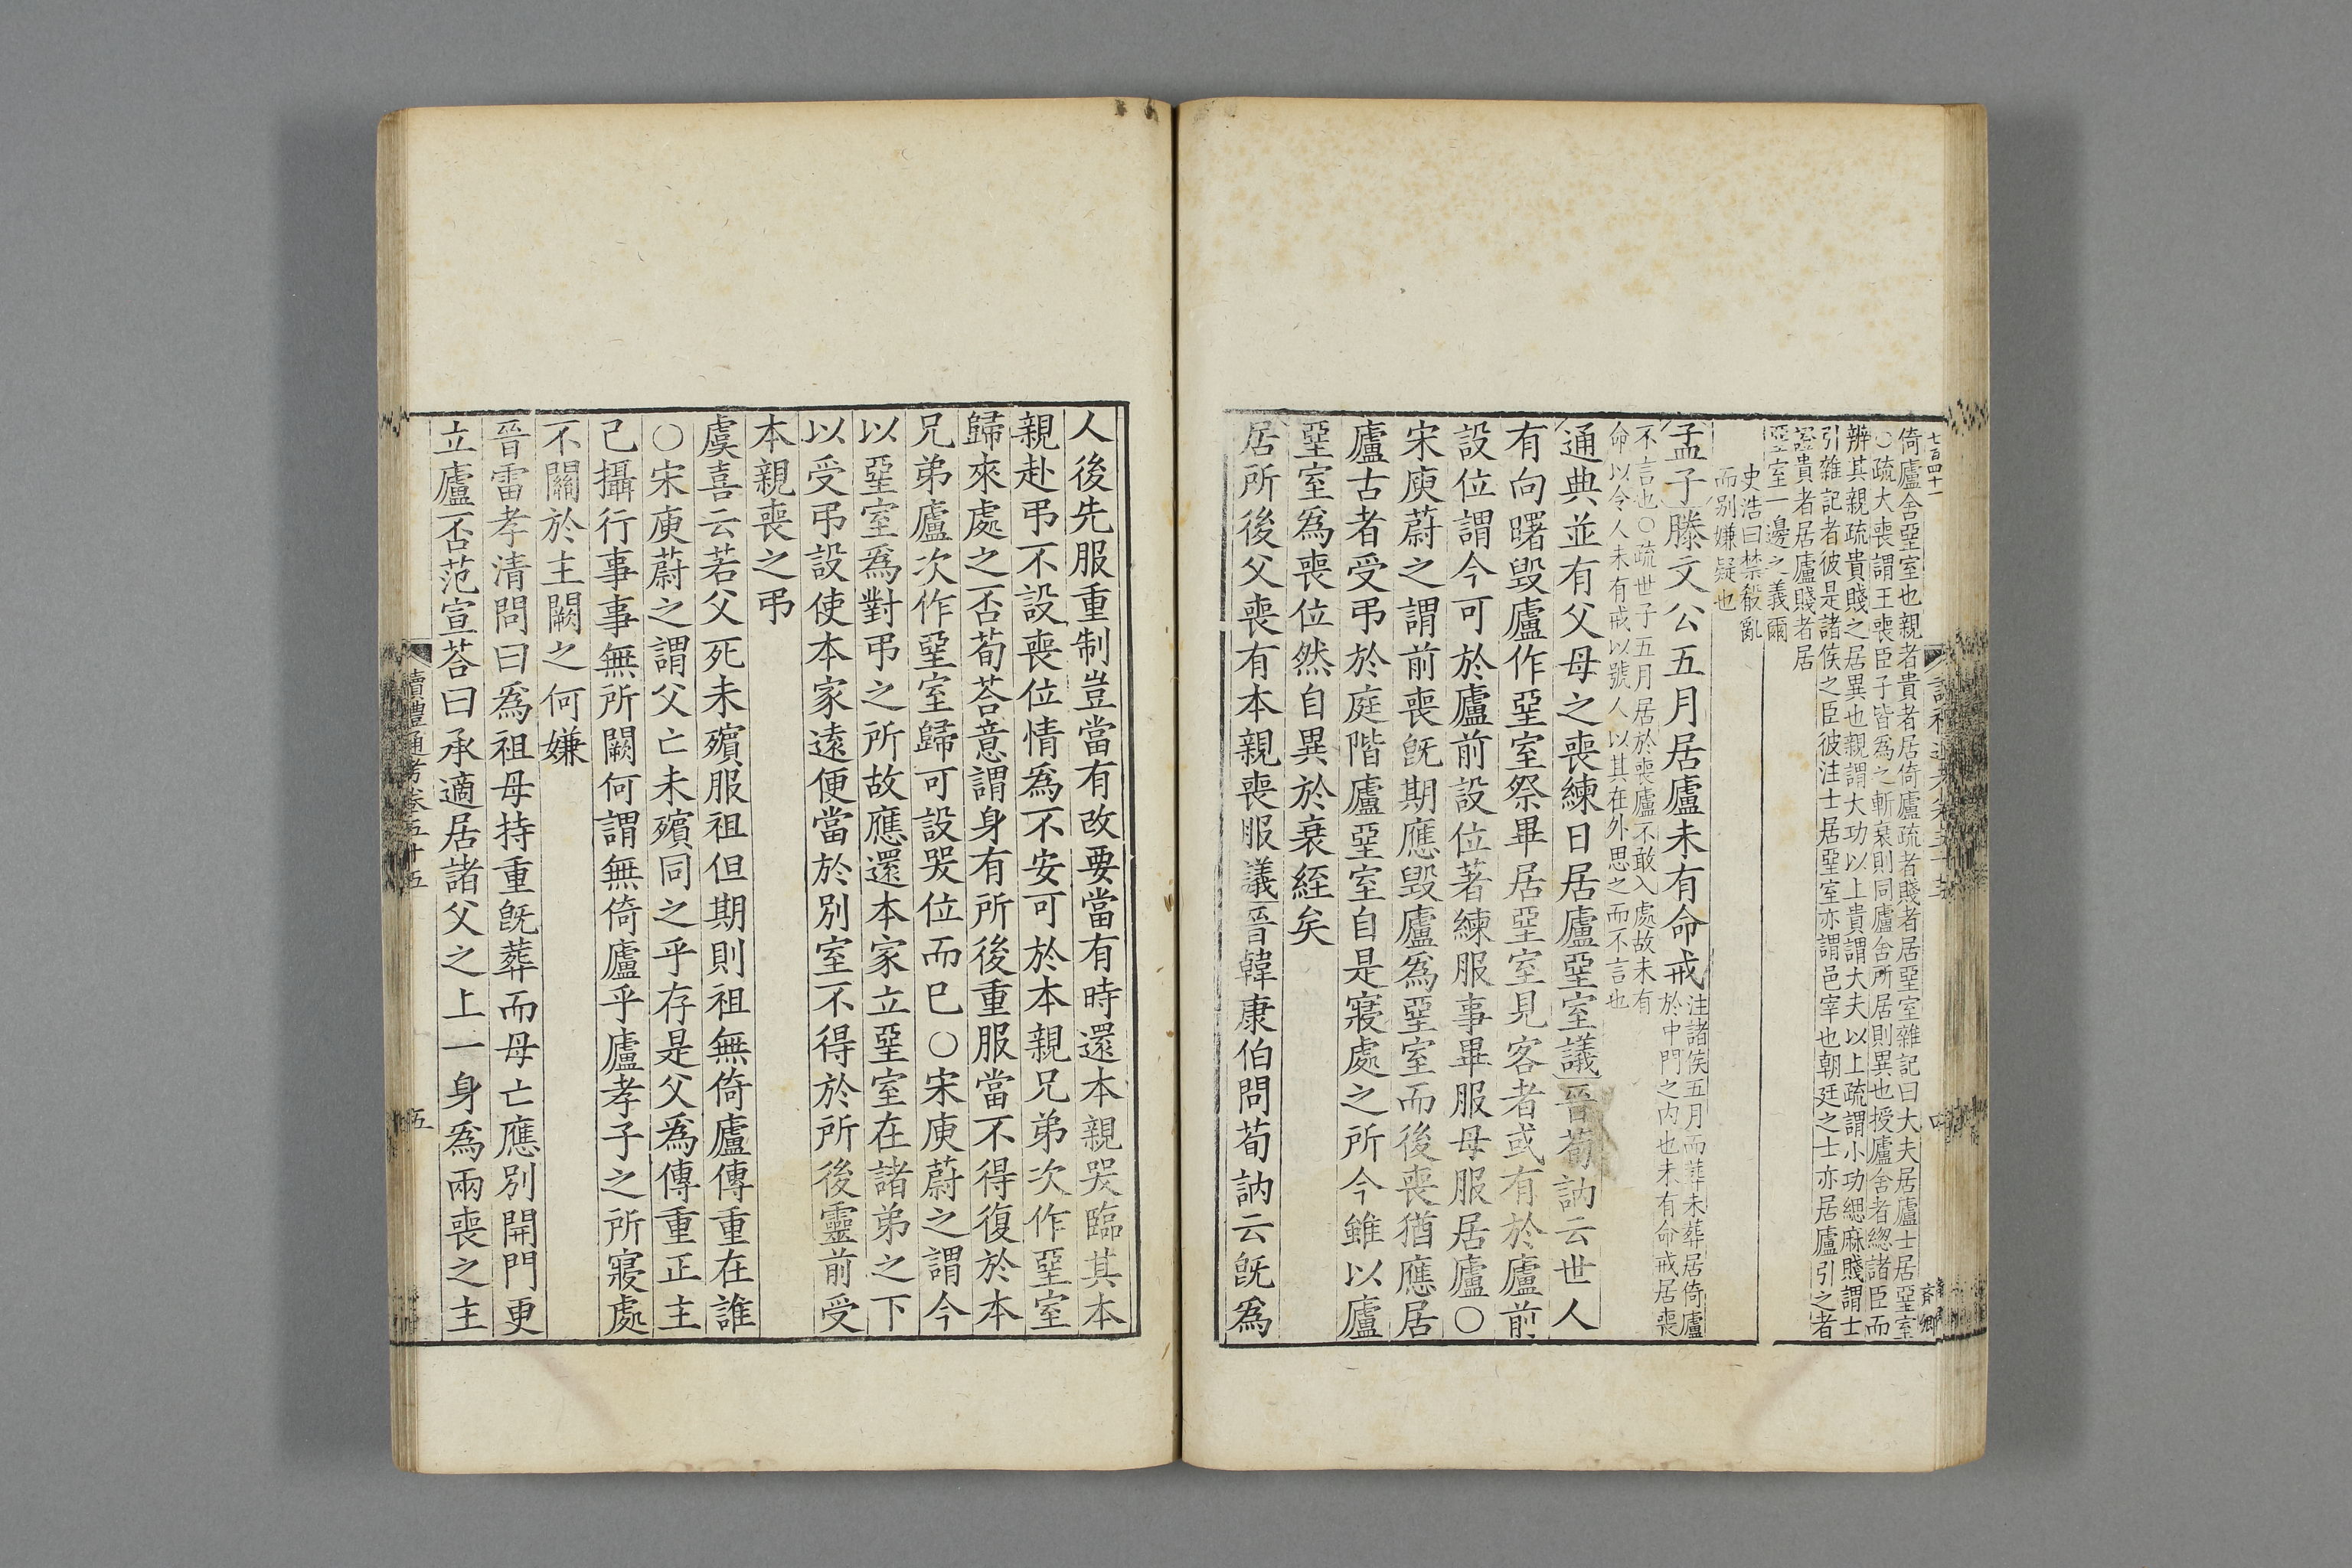 七百四十一
倚廬舍堊室也親者貴者居倚廬疏者賤者居堊室雜記曰大夫居廬士居堊室
○疏大喪謂王喪臣子皆爲之斬衰則同廬舍所居則異也授廬舍者緦諸臣而
辨其親疏貴賤之居異也親謂大功以上貴謂大夫以上疏謂小功緦麻賤謂士
引雜記者彼是諸侯之臣彼注士居堊室亦謂邑宰也朝廷之士亦居廬引之者
證貴者居廬賤者居
堊室一邊之義爾
史浩曰禁殽亂
而别嫌疑也
孟子滕文公五月居廬未有命戒
注諸侯五月而葬未葬居倚廬
於中門之内也未有命戒居喪
不言也○疏世子五月居於喪廬不敢入處故未有
命以令人未有戒以號人以其在外思之而不言也
通典並有父母之喪練日居廬堊室議晉荀訥云世人
有向曙毁廬作堊室祭畢居堊室見客者或有於廬前
設位謂今可於廬前設位著練服事畢服母服居廬○
宋庾蔚之謂前喪旣期應毁廬爲堊室而後喪猶應居
廬古者受弔於庭階廬堊室自是寢處之所今雖以廬
堊室爲喪位然自異於衰絰矣
居所後父喪有本親喪服議晉韓康伯問荀訥云旣爲
人後先服重制豈當有改要當有時還本親哭臨其本
親赴弔不設喪位情爲不安可於本親兄弟次作堊室
歸來處之否荀荅意謂身有所後重服當不得復於本
兄弟廬次作堊室歸可設哭位而已○宋庾蔚之謂今
以堊室爲對弔之所故應還本家立堊室在諸弟之下
以受弔設使本家遠便當於別室不得於所後靈前受
本親喪之弔
虞喜云若父死未殯服祖但期則祖無倚廬傳重在誰
○宋庾蔚之謂父亡未殯同之乎存是父爲傳重正主
己攝行事事無所闕何謂無倚廬乎廬孝子之所寢處
不關於主闕之何嫌
晉雷孝清問曰爲祖母持重旣葬而母亡應別開門更
立廬否范宣荅曰承適居諸父之上一身爲兩喪之主
讀禮通考卷五十五
五